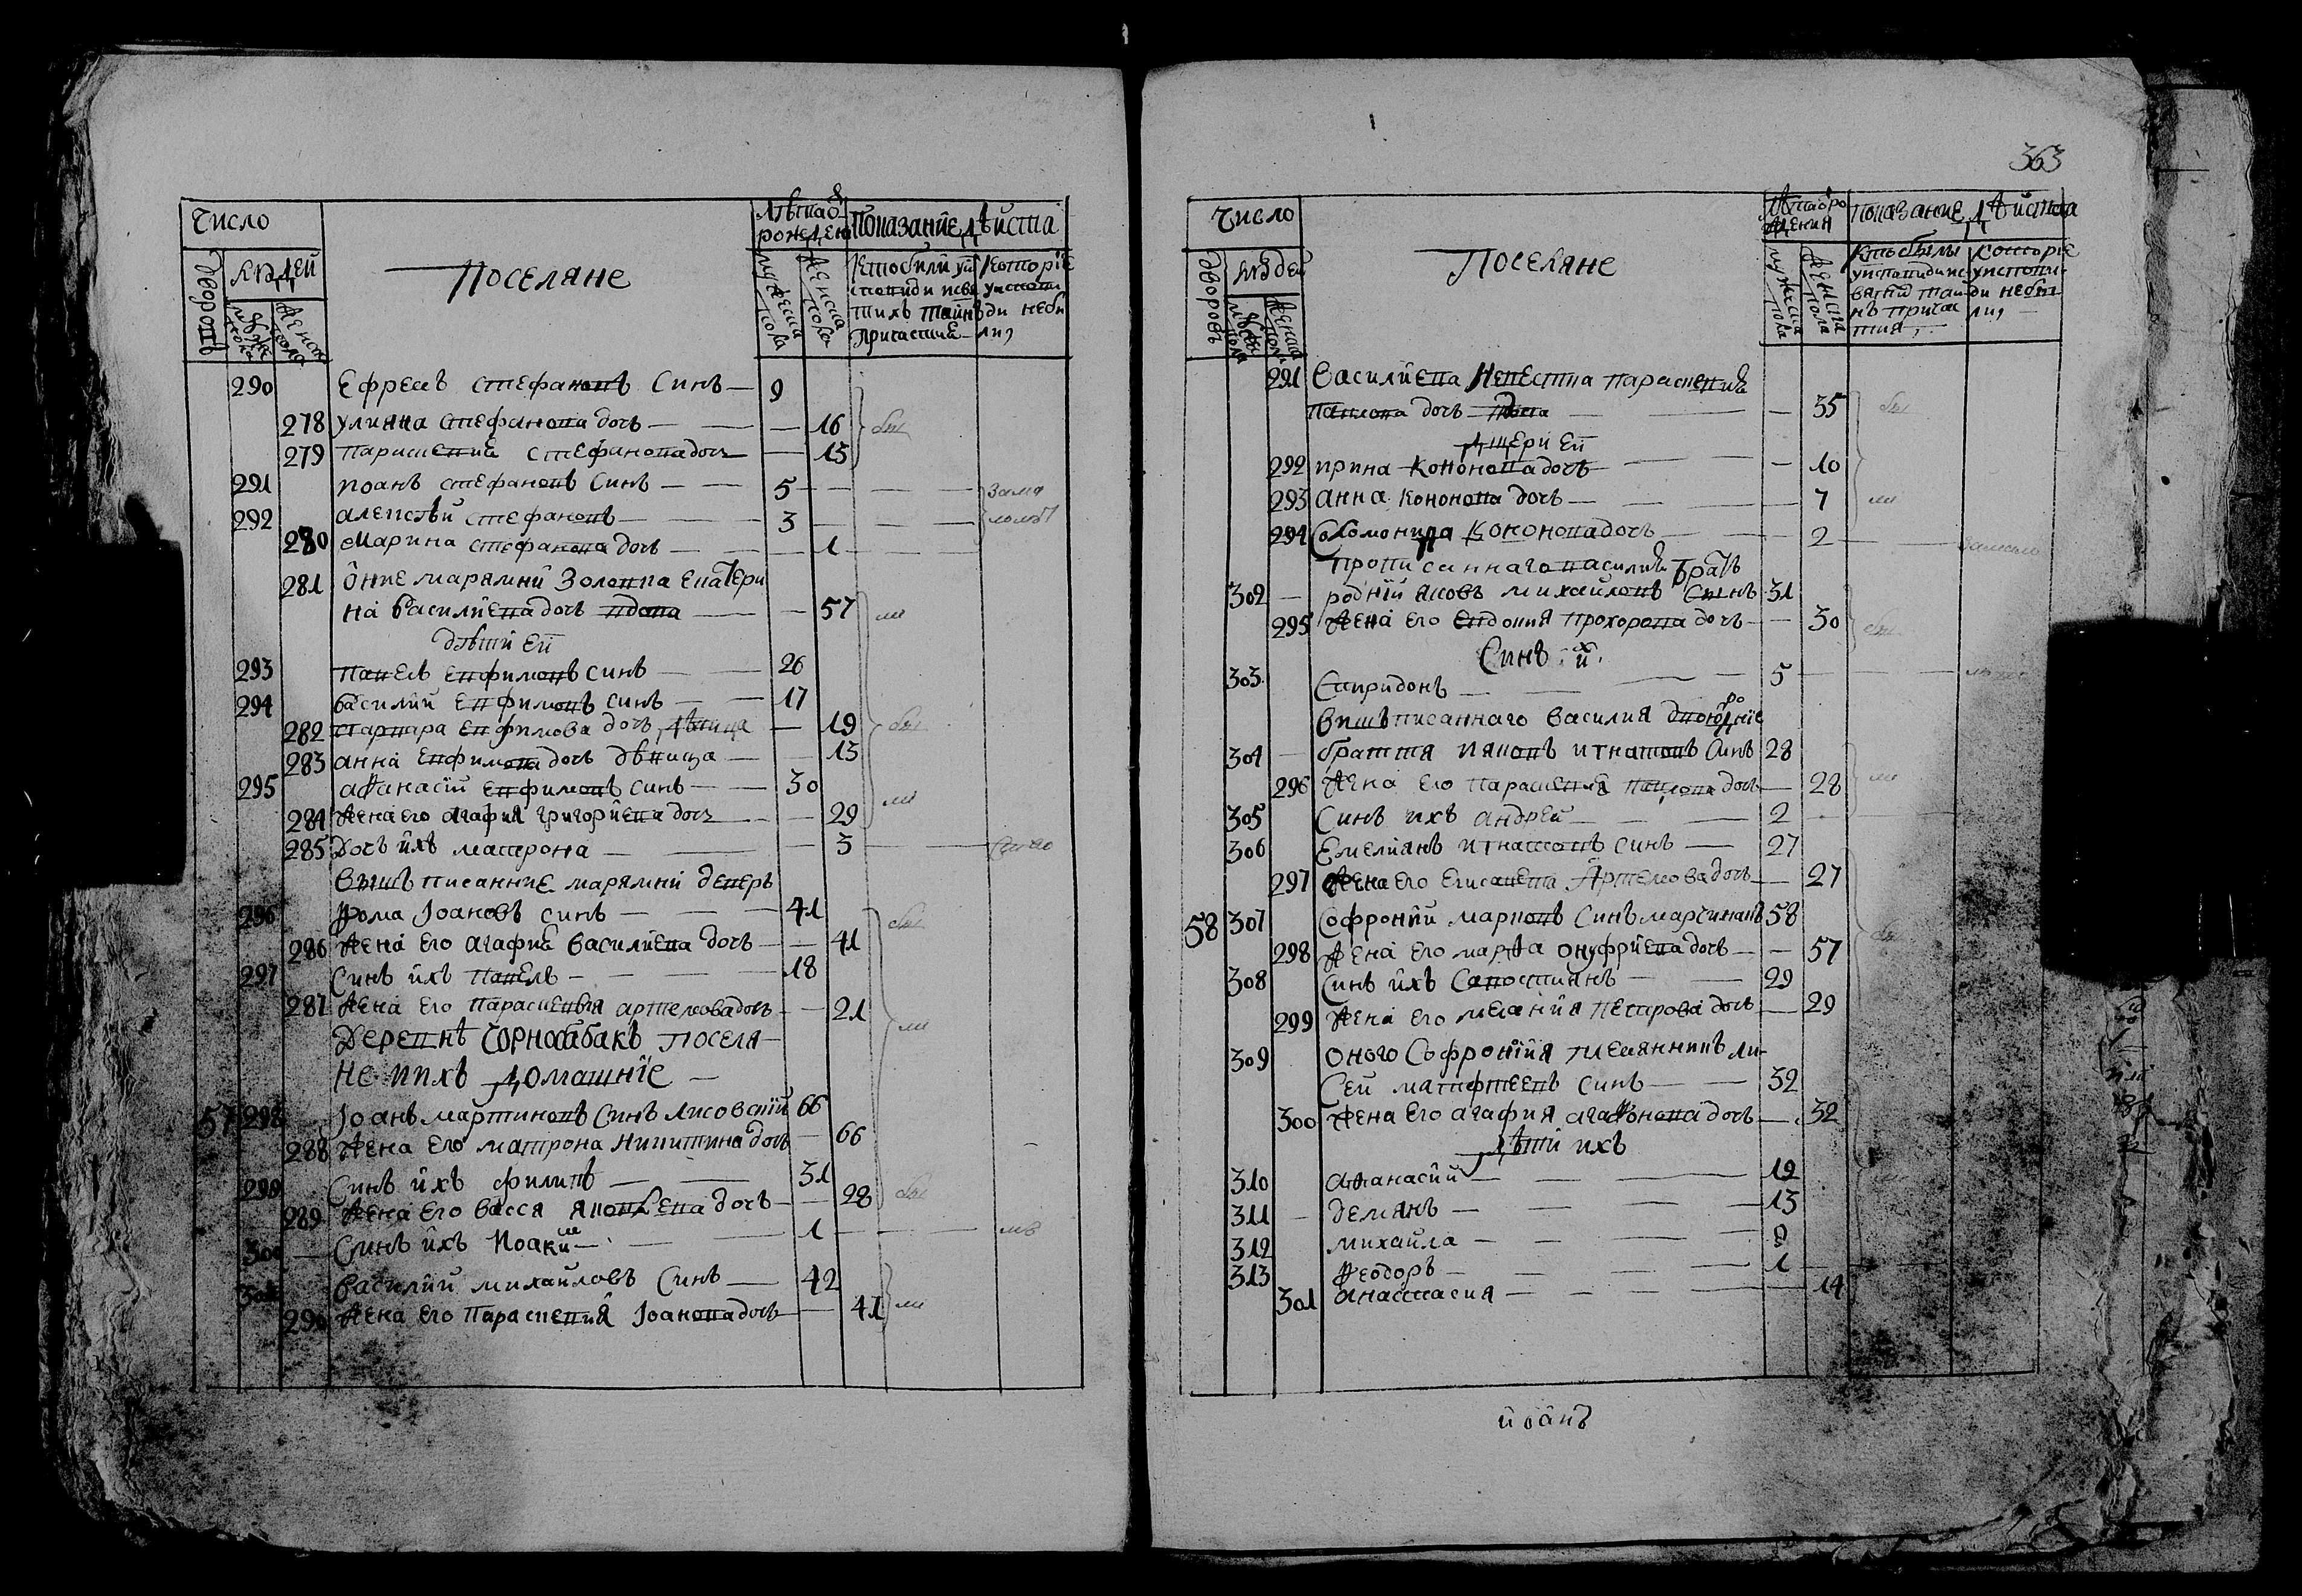 Число
Людей
Дворовъ
мужеска пола
женска пола
Поселяне
Лѣта от рожденія
мужеска пола
женска пола
Показаніе дѣйства
Кто были у исповѣди и святихъ тайнъ причастія
Которіе у исповѣди не були
290 Ефремъ Стефановъ синъ — 9
278 Улияна Стефанова дочь — 16 бы
279 Параскевия Стефанова дочь — 13
291 Иоанъ Стефановъ синъ — 5 — за ма
292 Алексѣй Стефановъ — 3 — лолѣт
280 Марина Стефанова дочь — 1
281 Оние Марямни Золотка Екатери
на Василиева дочь вдова — 57 ли
дѣти ей
293 Павелъ Евфимовъ синъ — 26
294 Василий Евфимовъ синъ — 17
282 Варвара Евфимова дочь дѣвица — 19 бы
283 Анна Евфимова дочь дѣвица — 13
295 Афанасій Евфимовъ синъ — 30
284 Жена его Агафия Григориева дочь — 29 ли
285 Дочь ихъ Матрона — 3
Вишъписанние Марямни деверъ
296 Фома Іоановъ синъ — 41 бы
286 Жена его Агафия Василиева дочь — 41
297 Синъ ихъ Павелъ — 18
287 Жена его Параскевия Артемова дочь — 21 ли
Деревнѣ Чорнобабакъ поселя
не и ихъ домашніе —
57 298 Іоанъ Мартиновъ синъ Лисовский 66
288 Жена его Матрона Никитина дочь — 66
299 Синъ ихъ Филипъ — 31
289 Жена его Васся Яковлева дочь — 28 бы
300 — Синъ ихъ Иоаким — 1
301 Василий Михайловъ синъ — 42
290 Жена его Параскевия Іоанова дочь — 41 ли
363
Число
Людей
Дворовъ
мужеска пола
женска пола
Поселяне
Лѣта от рождения
мужеска пола
женска пола
Показание дѣйства
Кто были у исповиди и святій тайнъ причастия
Которіе у исповиди не були
291 Василиева невестка Параскевия
Павлова дочь вдова — 35 бы
дщери ей
292 Ирина Кононова дочь — 10
293 Анна Кононова дочь — 7 ли
294 Соломонида Кононова дочь — 2
Прописаннаго Василия братъ
302 — родній Яковъ Михайловъ синъ 31
295 Жена его Евдокия Прохорова дочь — 30
Синъ их
303 Спиридонъ — 5
Вишъписаннаго Василия двоюродніе
304 — браття Ияковъ Игнатовъ синъ 28
296 Жена его Параскевия Павлова дочь — 28 ли
305 Синъ ихъ Андрей — 2
306 Емелиянъ Игнатовъ синъ — 27
297 Жена его Елисавета Артемова дочь — 27
58 307 Софроний Марковъ синъ 58
298 Жена его Марфа Онуфриева дочь — 57
308 Синъ ихъ Савостиянъ — 29
299 Жена его Мелания Петрова дочь — 29
309 Оного Софрония племянникъ Ли-
сей Матфеевъ синъ — 32
300 Жена его Агафия Агафонова дочь — 32
дѣти ихъ
310 Афанасий — 19
311 — Демянъ — 13
312 Михайла — 9
313 Феодоръ — 1
301 Анастасия — 14
иоанъ